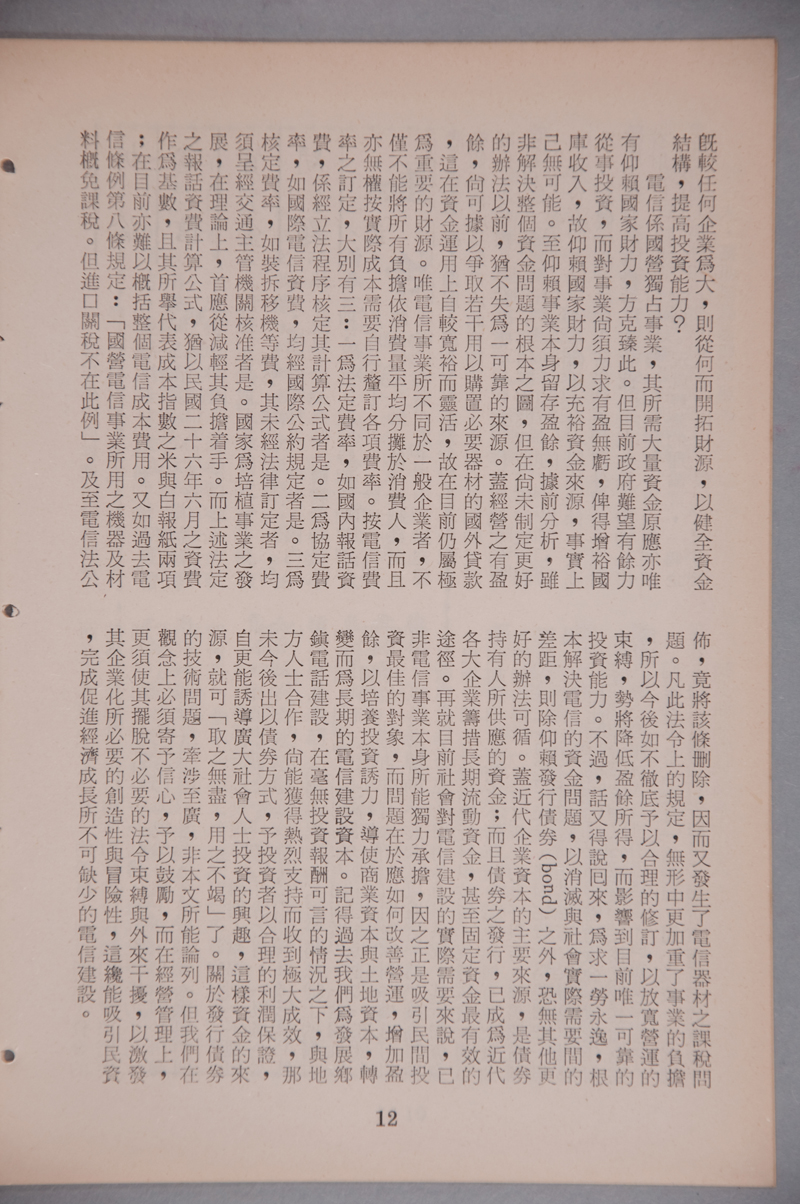 旣較任何企業爲大，則從何而開拓財源，以健全資金
結構，提高投資能力？
電信係國營獨占事業，其所需大量資金原應亦唯
有仰賴國家財力，方克臻此。但目前政府難望有餘力
從事投資，而對事業尙須力求有盈無虧，俾得增裕國
庫收入，故仰賴國家財力，以充裕資金來源，事實上
已無可能。至仰賴事業本身留存盈餘，據前分析，雖
非解決整個資金問題的根本之圖，但在尙未制定更好
的辦法以前，猶不失爲一可靠的來源。蓋經營之有盈
餘，尙可據以爭取若干用以購置必要器材的國外貸款
，這在資金運用上自較寬裕而靈活，故在目前仍屬極
爲重要的財源。唯電信事業所不同於一般企業者，不
僅不能將所有負擔依消費量平均分攤於消費人，而且
亦無權按實際成本需要自行釐訂各項費率。按電信費
率之訂定，大別有三：一爲法定費率，如國內報話資
費，係經立法程序核定其計算公式者是。二爲協定費
率，如國際電信資費，均經國際公約規定者是。三爲
核定費率，如裝拆移機等費，其未經法律訂定者，均
須呈經交通主管機關核准者是。國家爲培植事業之發
展，在理論上，首應從減輕其負擔着手。而上述法定
之報話資費計算公式，猶以民國二十六年六月之資費
作爲基數，且其所舉代表成本指數之米與白報紙兩項
；在目前亦難以概括整個電信成本費用。又如過去電
信條例第八條規定：「國營電信事業所用之機器及材
料概免課稅。但進口關稅不在此例」。及至電信法公
佈，竟將該條刪除，因而又發生了電信器材之課稅問
題。凡此法令上的規定，無形中更加重了事業的負擔
，所以今後如不徹底予以合理的修訂，以放寬營運的
束縛，勢將降低盈餘所得，而影響到目前唯一可靠的
投資能力。不過，話又得說回來，爲求一勞永逸，根
本解決電信的資金問題，以消滅與社會實際需要間的
差距，則除仰賴發行債券(bond)之外，恐無其他更
好的辦法可循。蓋近代企業資本的主要來源，是債券
持有人所供應的資金；而且債券之發行，已成爲近代
各大企業籌措長期流動資金，甚至固定資金最有效的
途徑。再就目前社會對電信建設的實際需要來說，已
非電信事業本身所能獨力承擔，因之正是吸引民間投
資最佳的對象，而問題在於應如何改善營運，增加盈
餘，以培養投資誘力，導使商業資本與土地資本，轉
變而爲長期的電信建設資本。記得過去我們爲發展鄉
鎮電話建設，在毫無投資報酬可言的情況之下，與地
方人士合作，尙能獲得熱烈支持而收到極大成效，那
未今後出以債券方式，予投資者以合理的利潤保證，
自更能誘導廣大社會人士投資的興趣，這樣資金的來
源，就可「取之無盡，用之不竭」了。關於發行債券
的技術問題，牽涉至廣，非本文所能論列。但我們在
觀念上必須寄予信心，予以鼓勵，而在經營管理上，
更須使其擺脫不必要的法令束縛與外來干擾，以激發
其企業化所必要的創造性與冒險性，這纔能吸引民資
，完成促進經濟成長所不可缺少的電信建設。
12